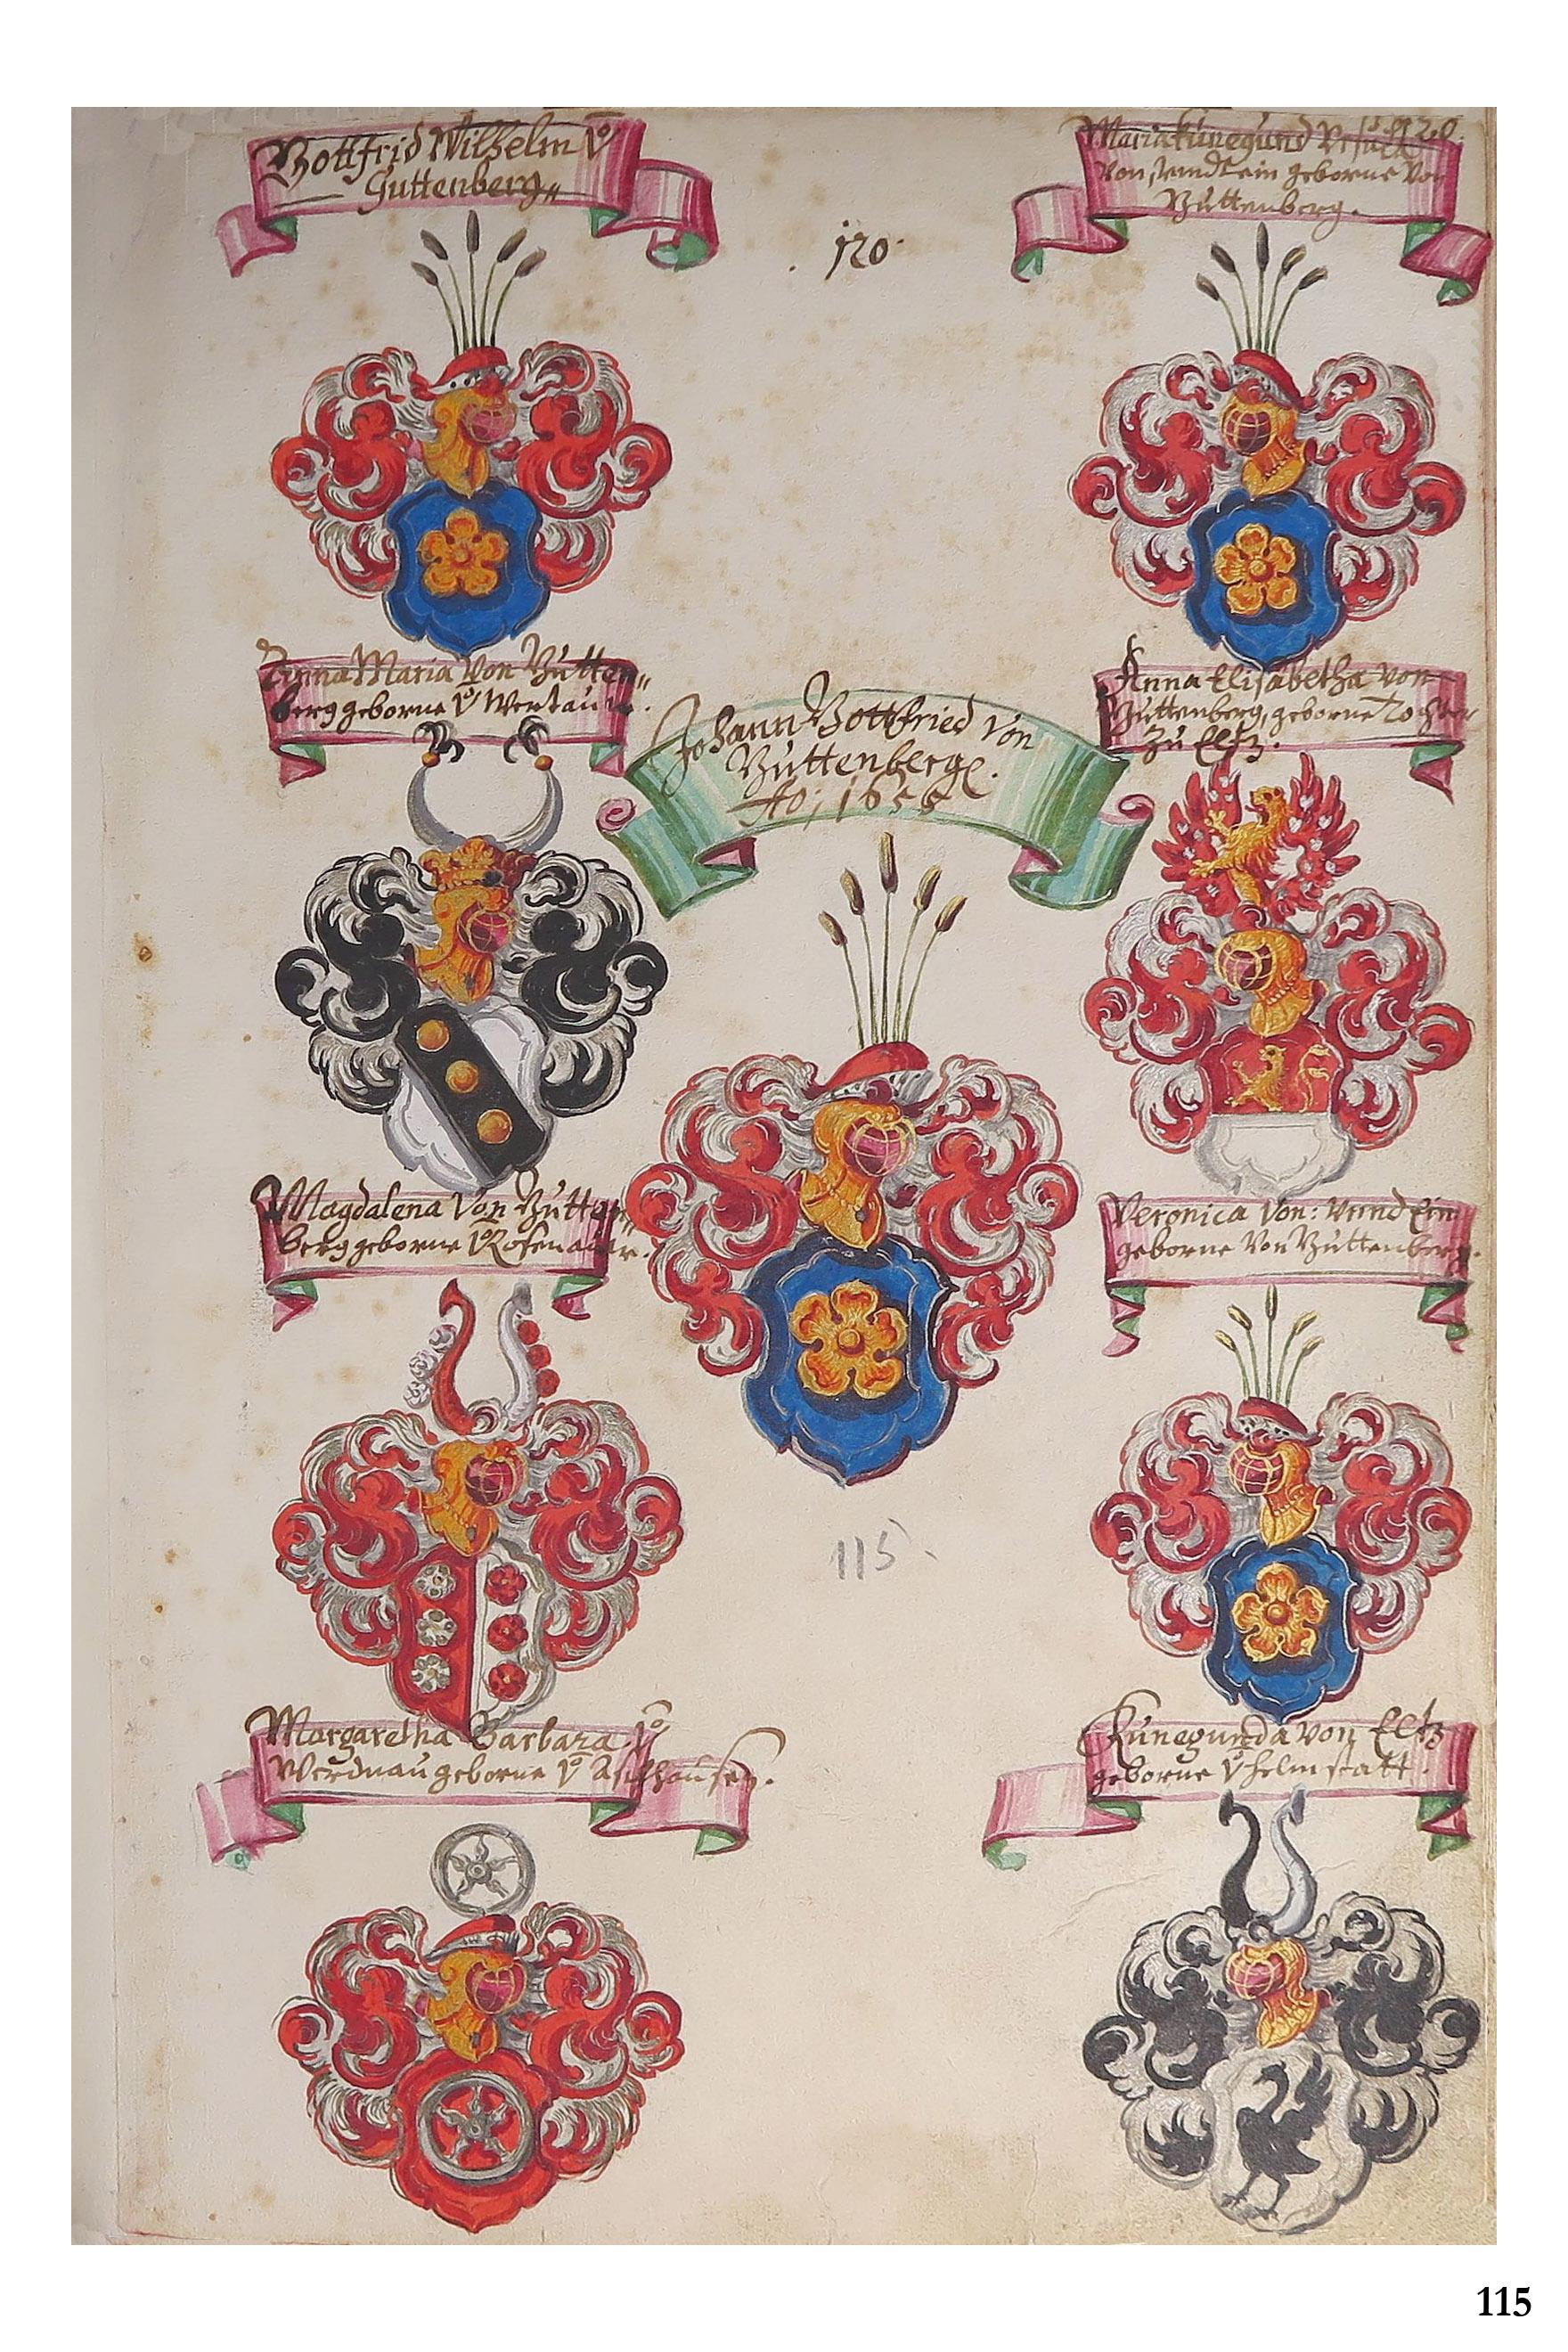 Gottfrid Wilhelm Vo
Guttenberg
120.
Maria Kunegund
geborne Von
Guttenberg.
Anna Maria Von Gutten
berg geborne Vo
Johann Gottfried von
Guttenberg.
Ao; 1655
Anna Elisabetha von
Guttenberg, geborne Tochter
Zu Eltz.
Magdalena Von Gutten
berg geborne Vo Rosenauer.
Veronica Von:
geborne Von Guttenberg.
115.
Margaretha Barbara Vo
Werdnau geborne Vo Aschhausen.
Kunegunda von Eltz
geborne V helmstatt.
115